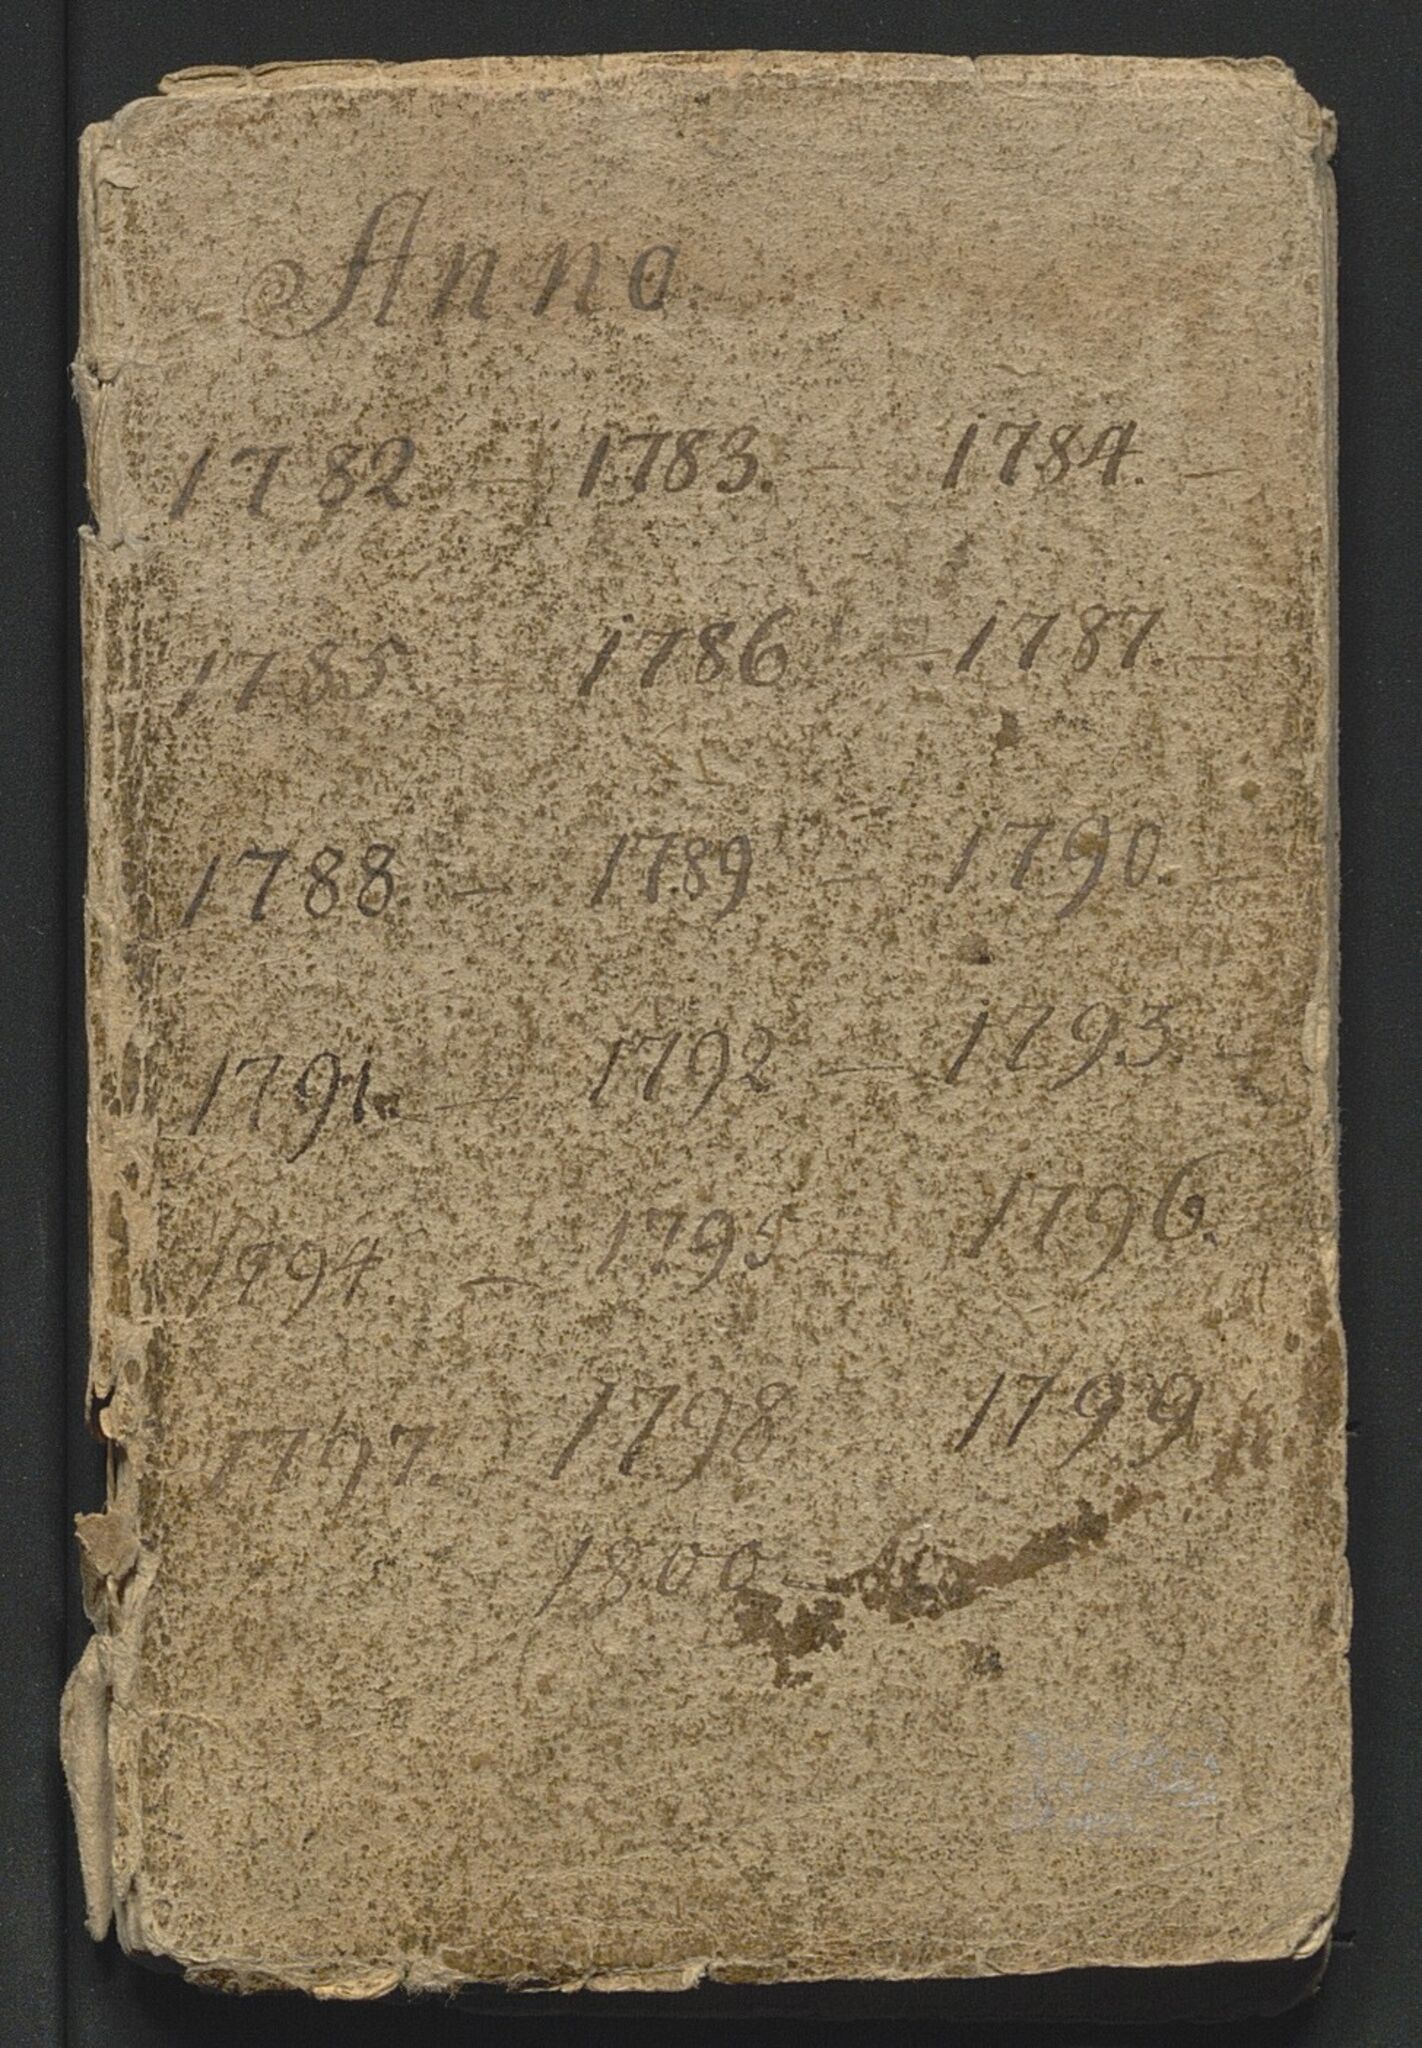 Anno
1782 — 1783. — 1784. —
1785 — 1786. — 1787. —
1788 — 1789 — 1790. —
1791. — 1792 — 1793. —
1794 — 1795 — 1796.
1797. 1798 1799
1800 —